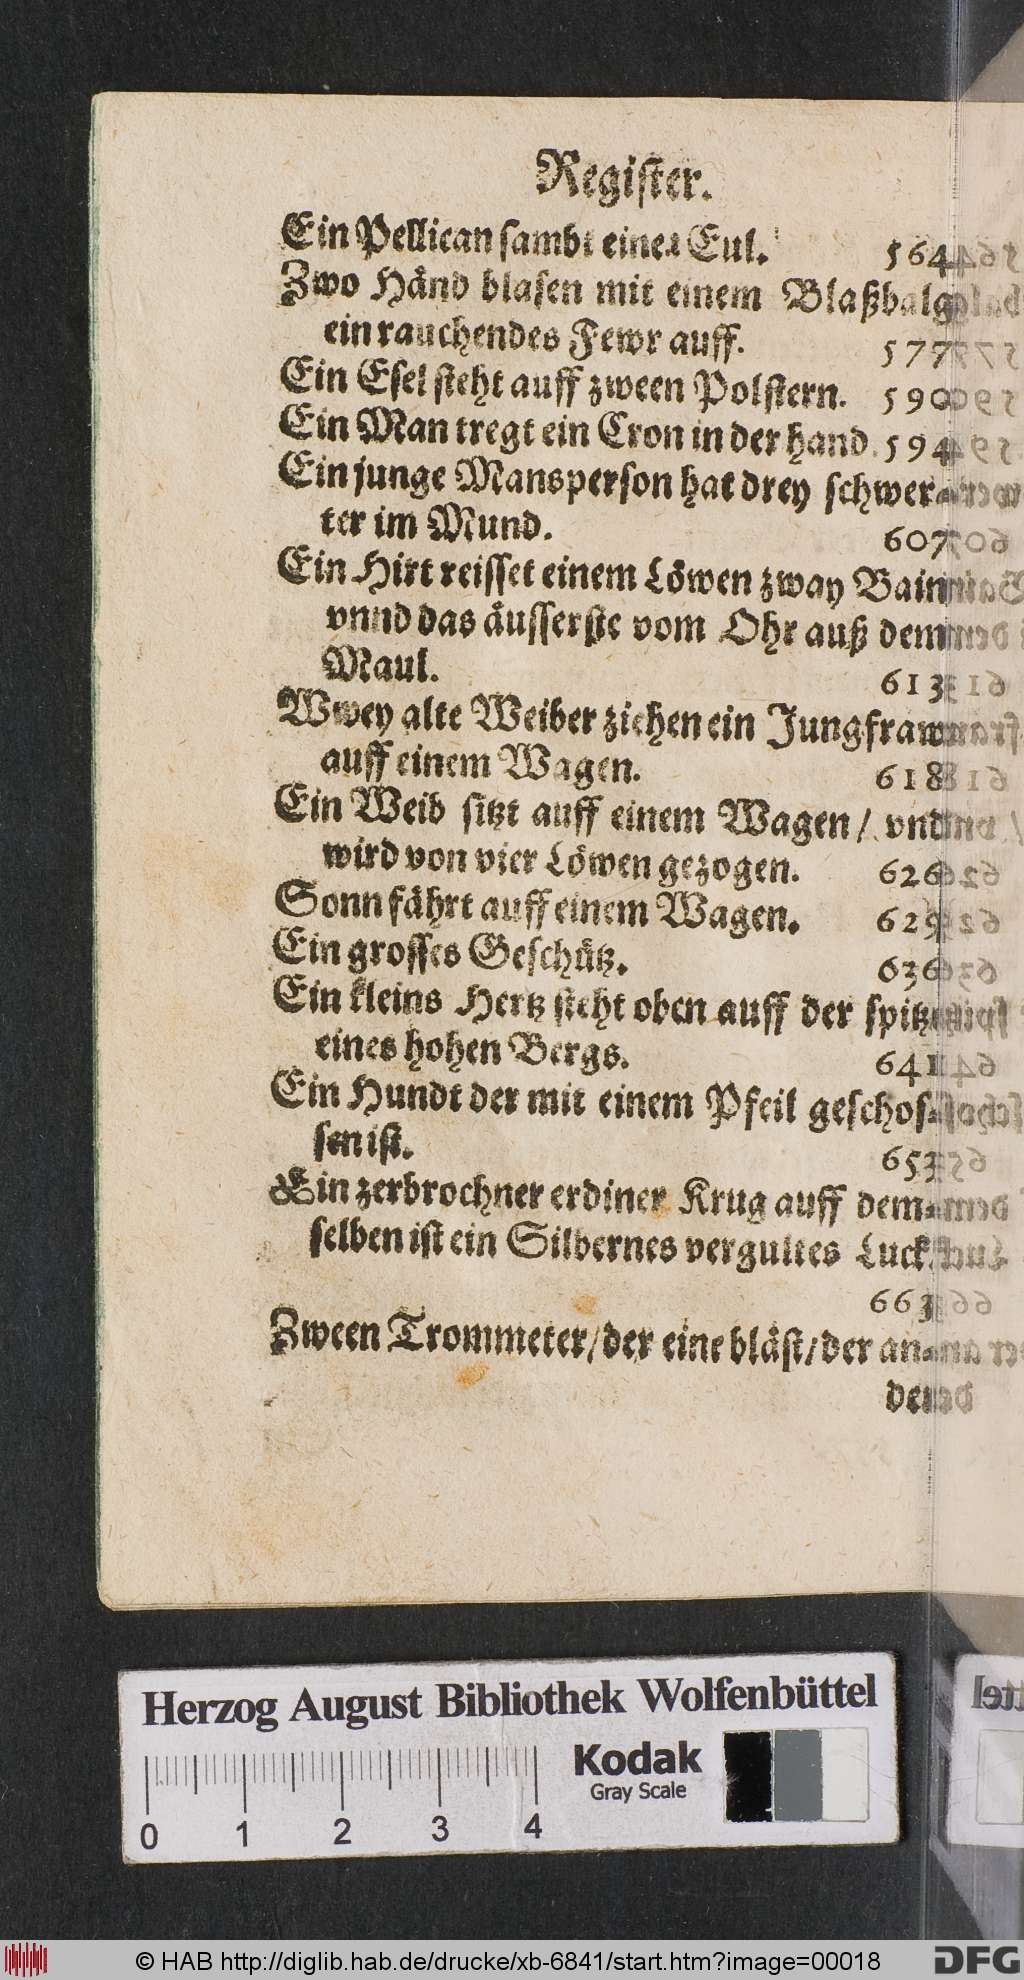 Register.
Ein Pellican sambt einer Eul. 564
Zwo Händ blasen mit einem Blaßbalg
ein rauchendes Fewr auff. 577
Ein Esel steht auff zween Polstern. 590
Ein Man tregt ein Cron in der hand. 594
Ein junge Mansperson hat drey schwer-
ter im Mund. 607
Ein Hirt reisset einem Löwen zway Bain
vnnd das äusserste vom Ohr auß dem
Maul. 613
Wwey alte Weiber ziehen ein Jungfraw
auff einem Wagen. 618
Ein Weib sitzt auff einem Wagen / vnd
wird von vier Löwen gezogen. 626
Sonn fährt auff einem Wagen. 629
Ein grosses Geschütz. 636
Ein kleins Hertz steht oben auff der spitz
eines hohen Bergs. 641
Ein Hundt der mit einem Pfeil geschos-
sen ist. 653
Ein zerbrochner erdiner Krug auff dem-
selben ist ein Silbernes vergultes Luck.
663
Zween Trommeter / der eine bläst / der an-
der
Herzog August Bibliothek Wolfenbüttel
Kodak
Gray Scale
0 1 2 3 4
© HAB http://diglib.hab.de/drucke/xb-6841/start.htm?image=00018
DFG